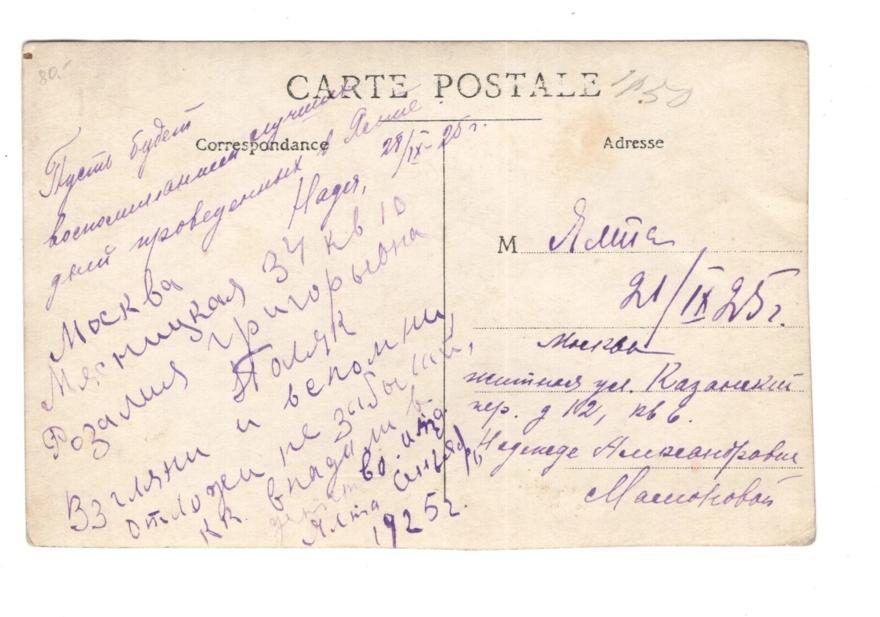 80.-
CARTE POSTALE
Correspondance
Adresse
Пусть будет
воспоминанием лучших
дней проведенных в Ялте
Надя, 28/IX-25 г.
Москва
Мясницкая 34 кв 10
Розалия Григорьевна
Поляк
Взгляни и вспомни,
отложи не забывай,
Ялта
1925г.
M Ялта
21/IX 25г.
Москва
житная ул. Казанский
пер. д 12, кв 6.
Надежде Александровне